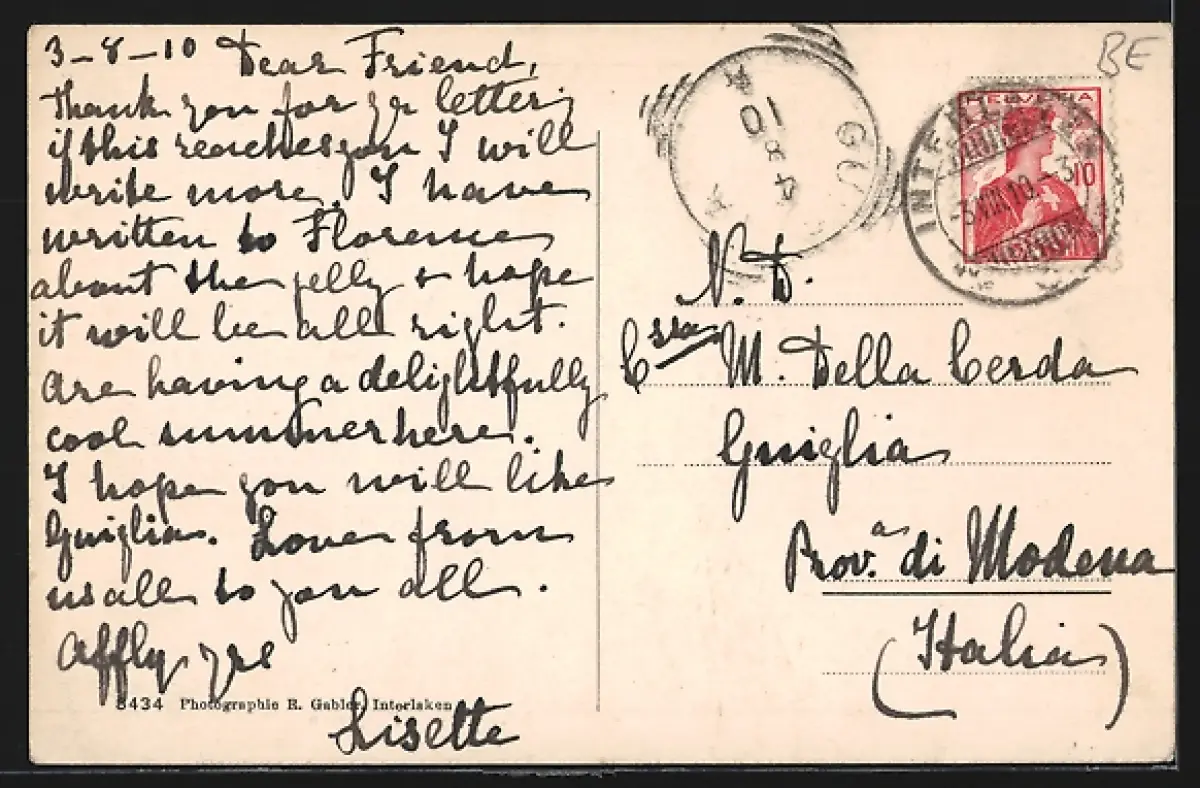 3-8-10 Dear Friend,
Thank you for yr letter;
if this reaches you I will
write more. I have
written to Florence
about the jelly & hope
it will be all right.
Are having a delightfully
cool summer here.
I hope you will like
Guiglia. Love from
us all to you all.
Affly yrs
Lisette
8434 Photographie R. Gabler, Interlaken
BE
HELVETIA
10
INTERLAKEN
-3.VIII.10.-3
GU
4 8 10
N. D.
Cssa M. Della Cerda
Guiglia
Prov.a di Modena
(Italia)